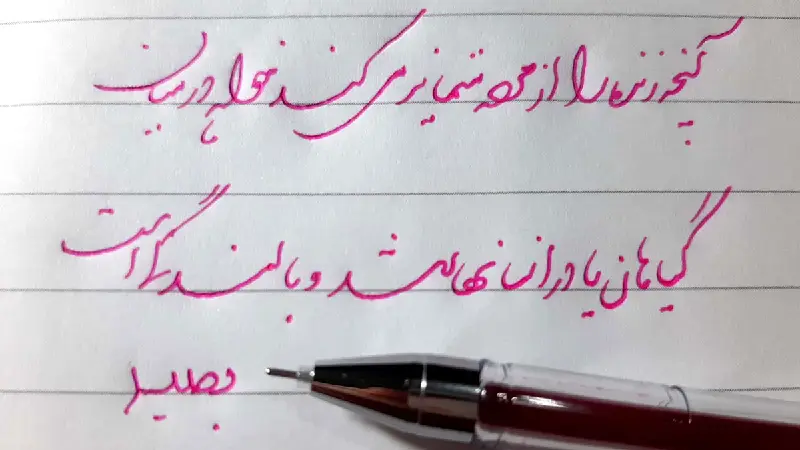 آنچه زنده را از مرده متمایز می کند نخواه در میان
گیاهان یا در انسانها رشد و بالندگی است
بصیر